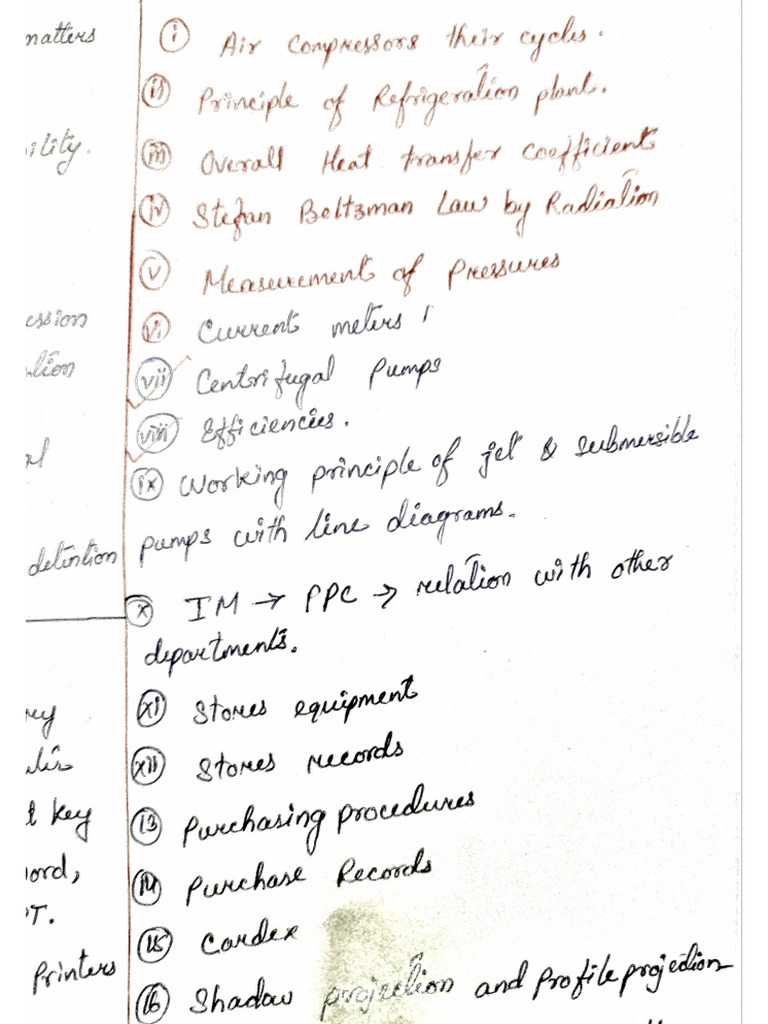 matters
ility.
ession
key
ord,
PT.
Printers
i Air Compressors their cycles.
ii Principle of Refrigeration plant.
iii Overall Heat transfer coefficient
iv Stefan Boltzman Law by Radiation
v Measurement of Pressures
vi Current meters
vii Centrifugal Pumps
viii Efficiencies.
ix Working principle of jet & submersible
pumps with line diagrams.
x IM → PPC → relation with other
departments.
xi Stores equipment
xii Stores records
13 Purchasing procedures
14 Purchase Records
15 Cardex
16 Shadow projection and profile projection